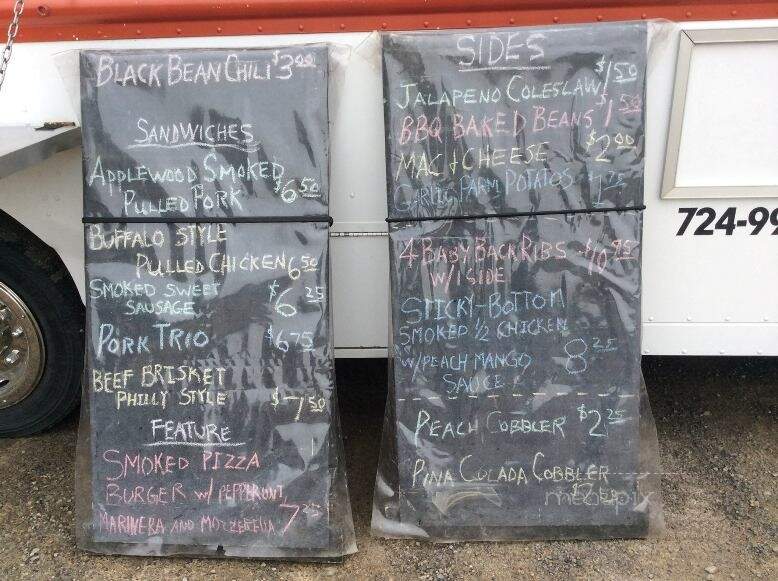 BLACK BEAN CHILI $3.00
SANDWICHES
APPLEWOOD SMOKED
PULLED PORK $6.50
BUFFALO STYLE
PULLED CHICKEN 6.50
SMOKED SWEET
SAUSAGE $6.25
PORK TRIO $6.75
BEEF BRISKET
PHILLY STYLE $7.50
FEATURE
SMOKED PIZZA
BURGER W/ PEPPERONI,
MARINERA AND MOZZERELLA 7.25
SIDES
JALAPENO COLESLAW $1.50
BBQ BAKED BEANS $1.50
MAC & CHEESE $2.00
GARLIC PARM POTATOS $1.75
4 BABY BACK RIBS $10.95
W/ SIDE
STICKY-BOTTOM
SMOKED 1/2 CHICKEN
W/PEACH MANGO 8.25
SAUCE
PEACH COBBLER $2.25
PINA COLADA COBBLER
724-99